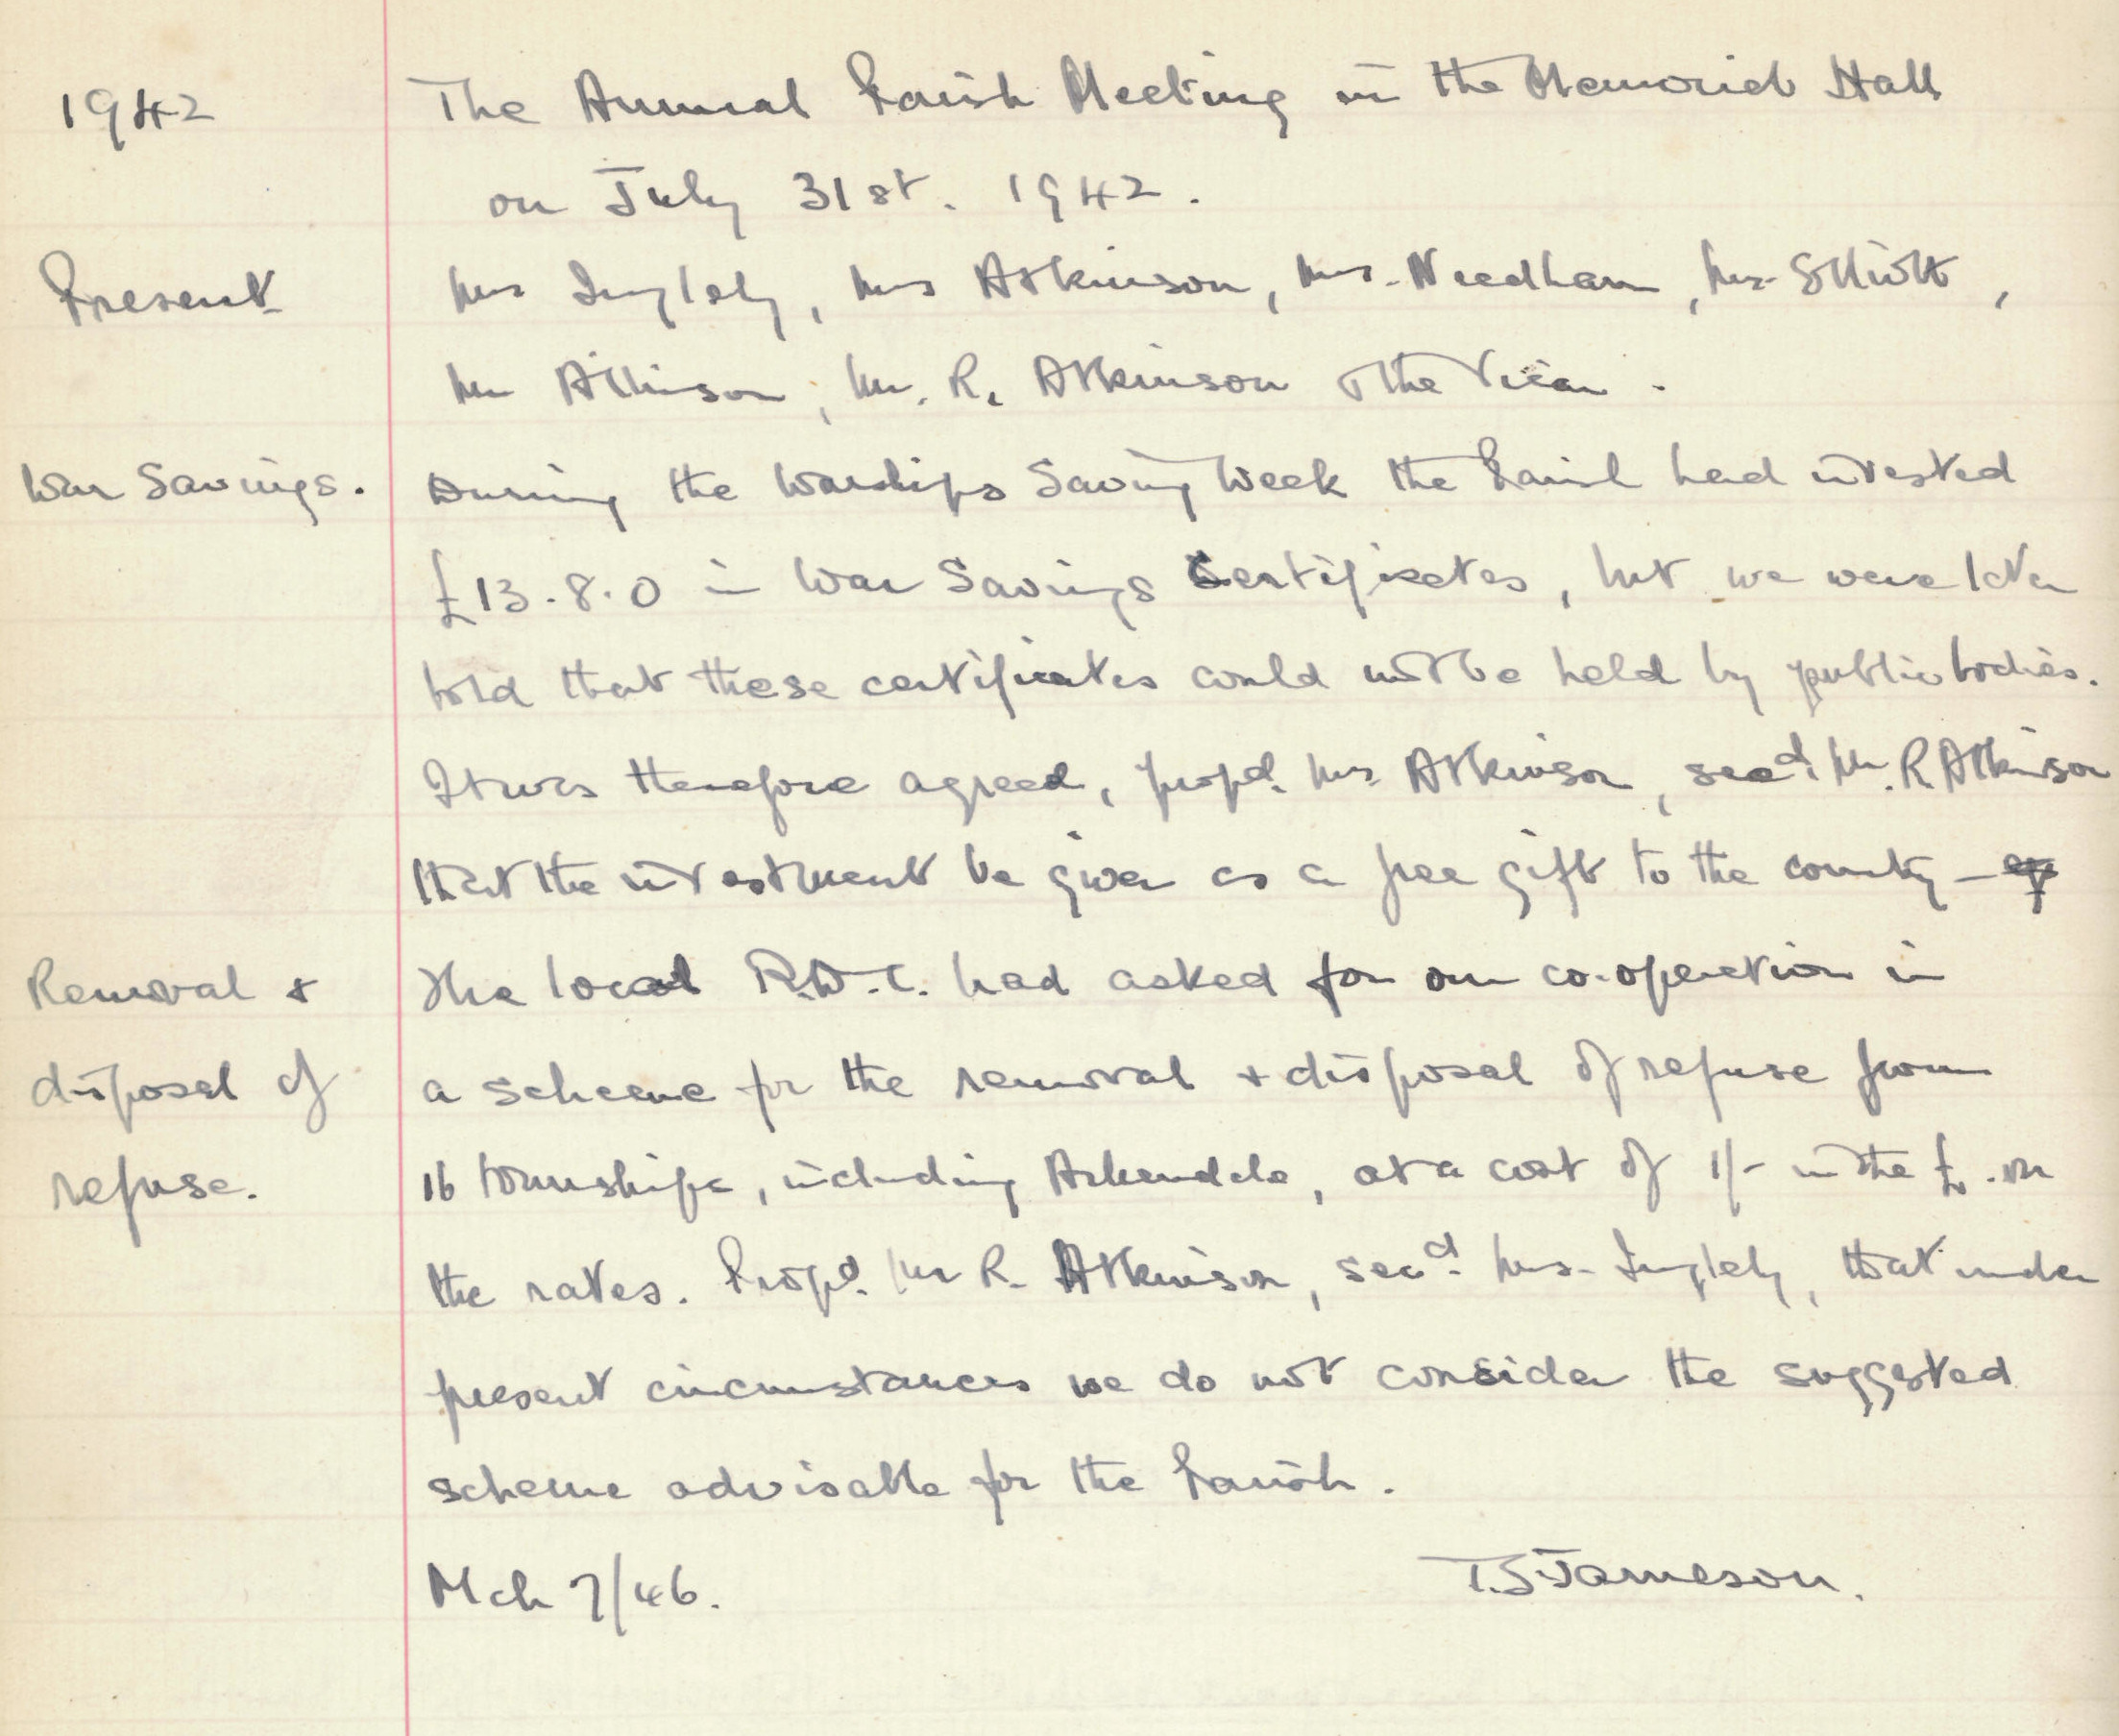 1942 The Annual Parish Meeting in the Memorial Hall
on July 31st. 1942.
Present Mrs Inglely, Mrs Atkinson, Mrs. Needham, Mrs. Elliott,
Mr Atkinson, Mr. R. Atkinson & the Vicar.
War Savings. During the Warships Saving Week the Parish had invested
£13.8.0 in War Savings Certificates, but we were later
told that these certificates could not be held by public bodies.
It was therefore agreed, propd. Mrs Atkinson, secd. Mr. R. Atkinson
that the investment be given as a free gift to the country -
Removal & The local R.D.C. had asked for our co-operation in
disposal of a scheme for the removal & disposal of refuse from
refuse. 16 townships, including Arkendale, at a cost of 1/- in the £. on
the rates. Propd. Mr R. Atkinson, secd. Mrs. Inglely, that under
present circumstances we do not consider the suggested
scheme advisable for the Parish.
Mch 7/46. T.S. Jameson.